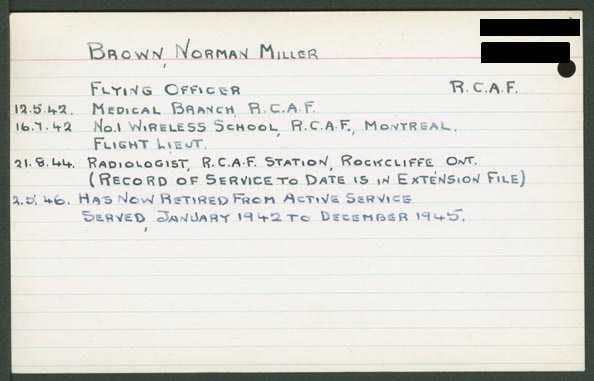 Brown, Norman Miller
Flying Officer R.C.A.F.
12.5.42. Medical Branch, R.C.A.F.
16.7.42 No.1 Wireless School, R.C.A.F., Montreal.
Flight Lieut.
21.8.44. Radiologist, R.C.A.F. Station, Rockcliffe Ont.
(Record of Service to Date is in Extension File)
2.5.46. Has Now Retired From Active Service
Served, January 1942 to December 1945.